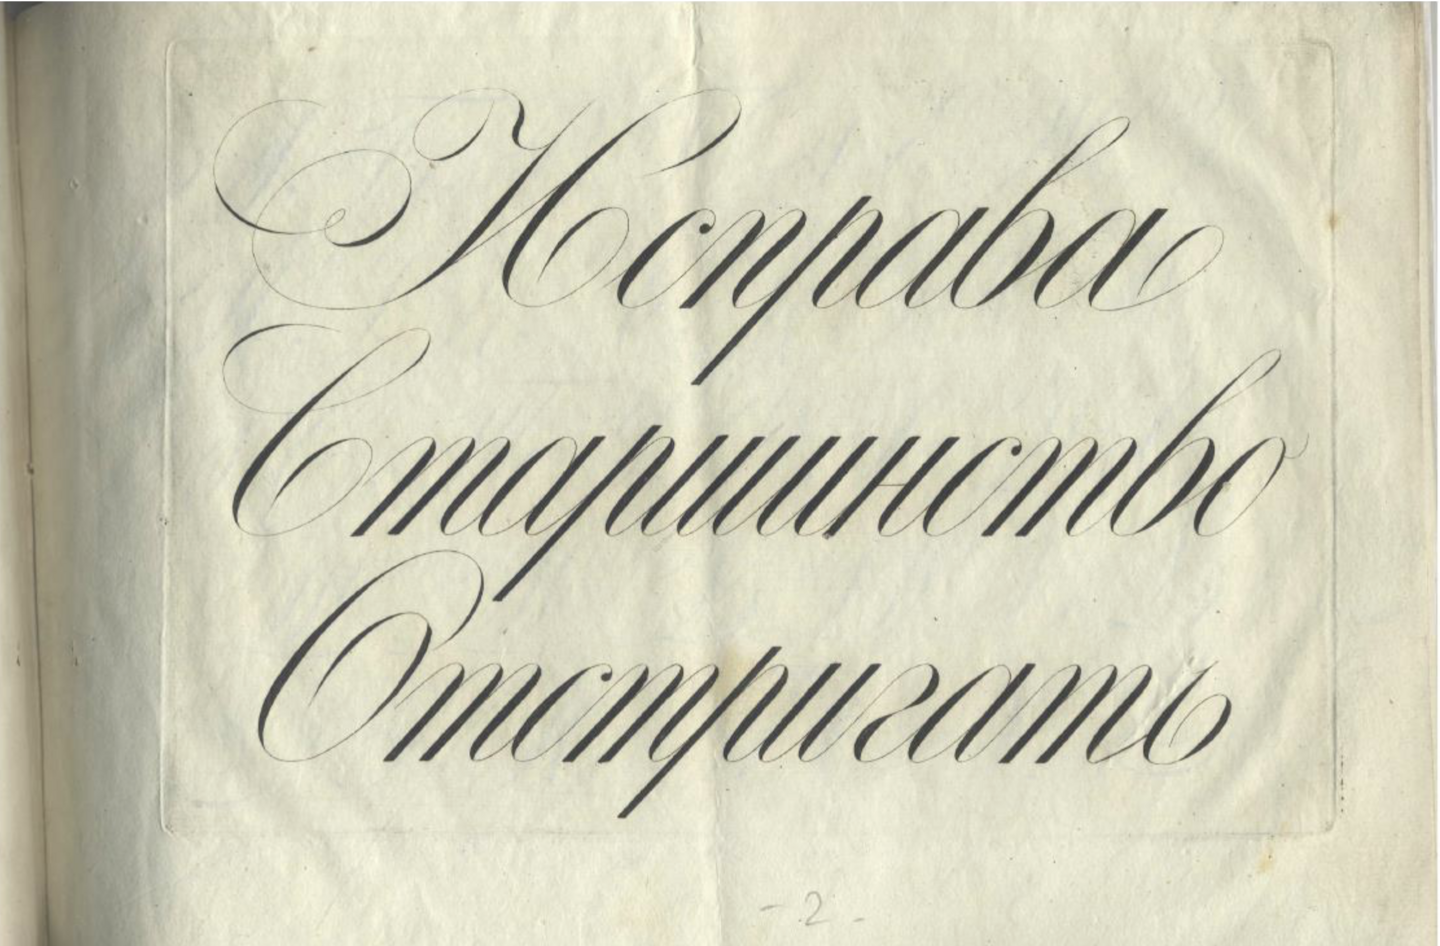 Исправа
Старшинство
Отстригать
- 2 -